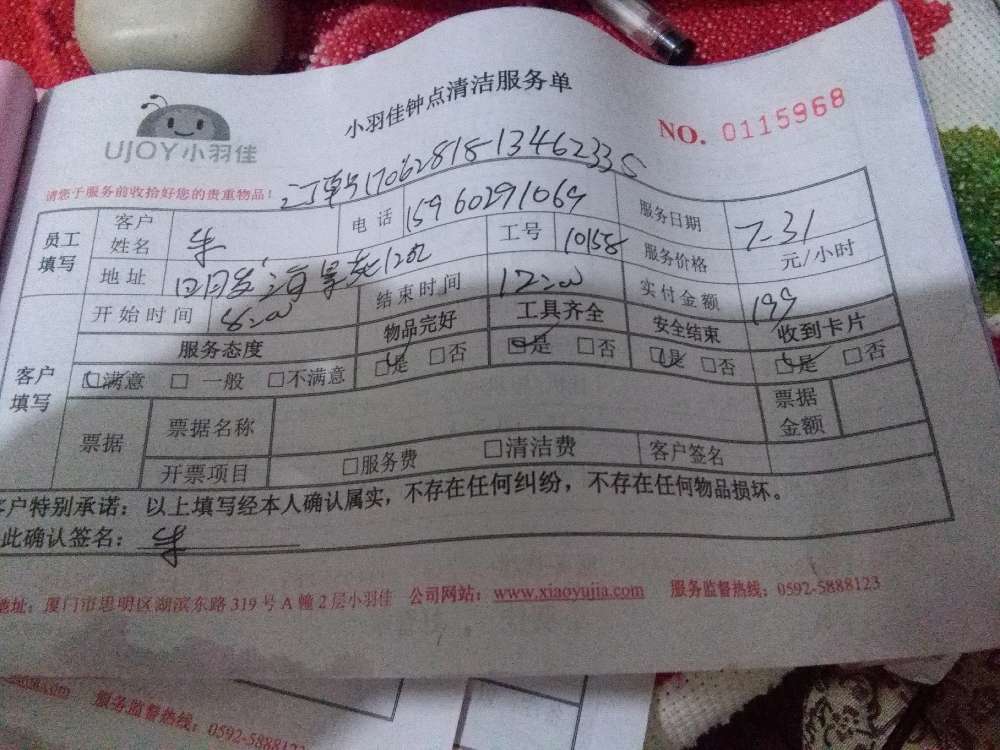 小羽佳钟点清洁服务单
NO. 0115968
UJOY小羽佳
请您于服务前收拾好您的贵重物品!
订单号17062818-13462335
员工填写 客户姓名 牛 电话 15960291069 服务日期 7-31
地址 工号 10158 服务价格 元/小时
开始时间 8:00 结束时间 12:00 实付金额 199
客户填写 服务态度 物品完好 工具齐全 安全结束 收到卡片
☑满意 □一般 □不满意 ☑是 □否 ☑是 □否 ☑是 □否 ☑是 □否
票据 票据名称 票据金额
开票项目 □服务费 □清洁费 客户签名
客户特别承诺:以上填写经本人确认属实,不存在任何纠纷,不存在任何物品损坏。
此确认签名: 牛
地址:厦门市思明区湖滨东路319号A幢2层小羽佳 公司网站:www.xiaoyujia.com 服务监督热线:0592-5888123
服务监督热线:0592-5888123